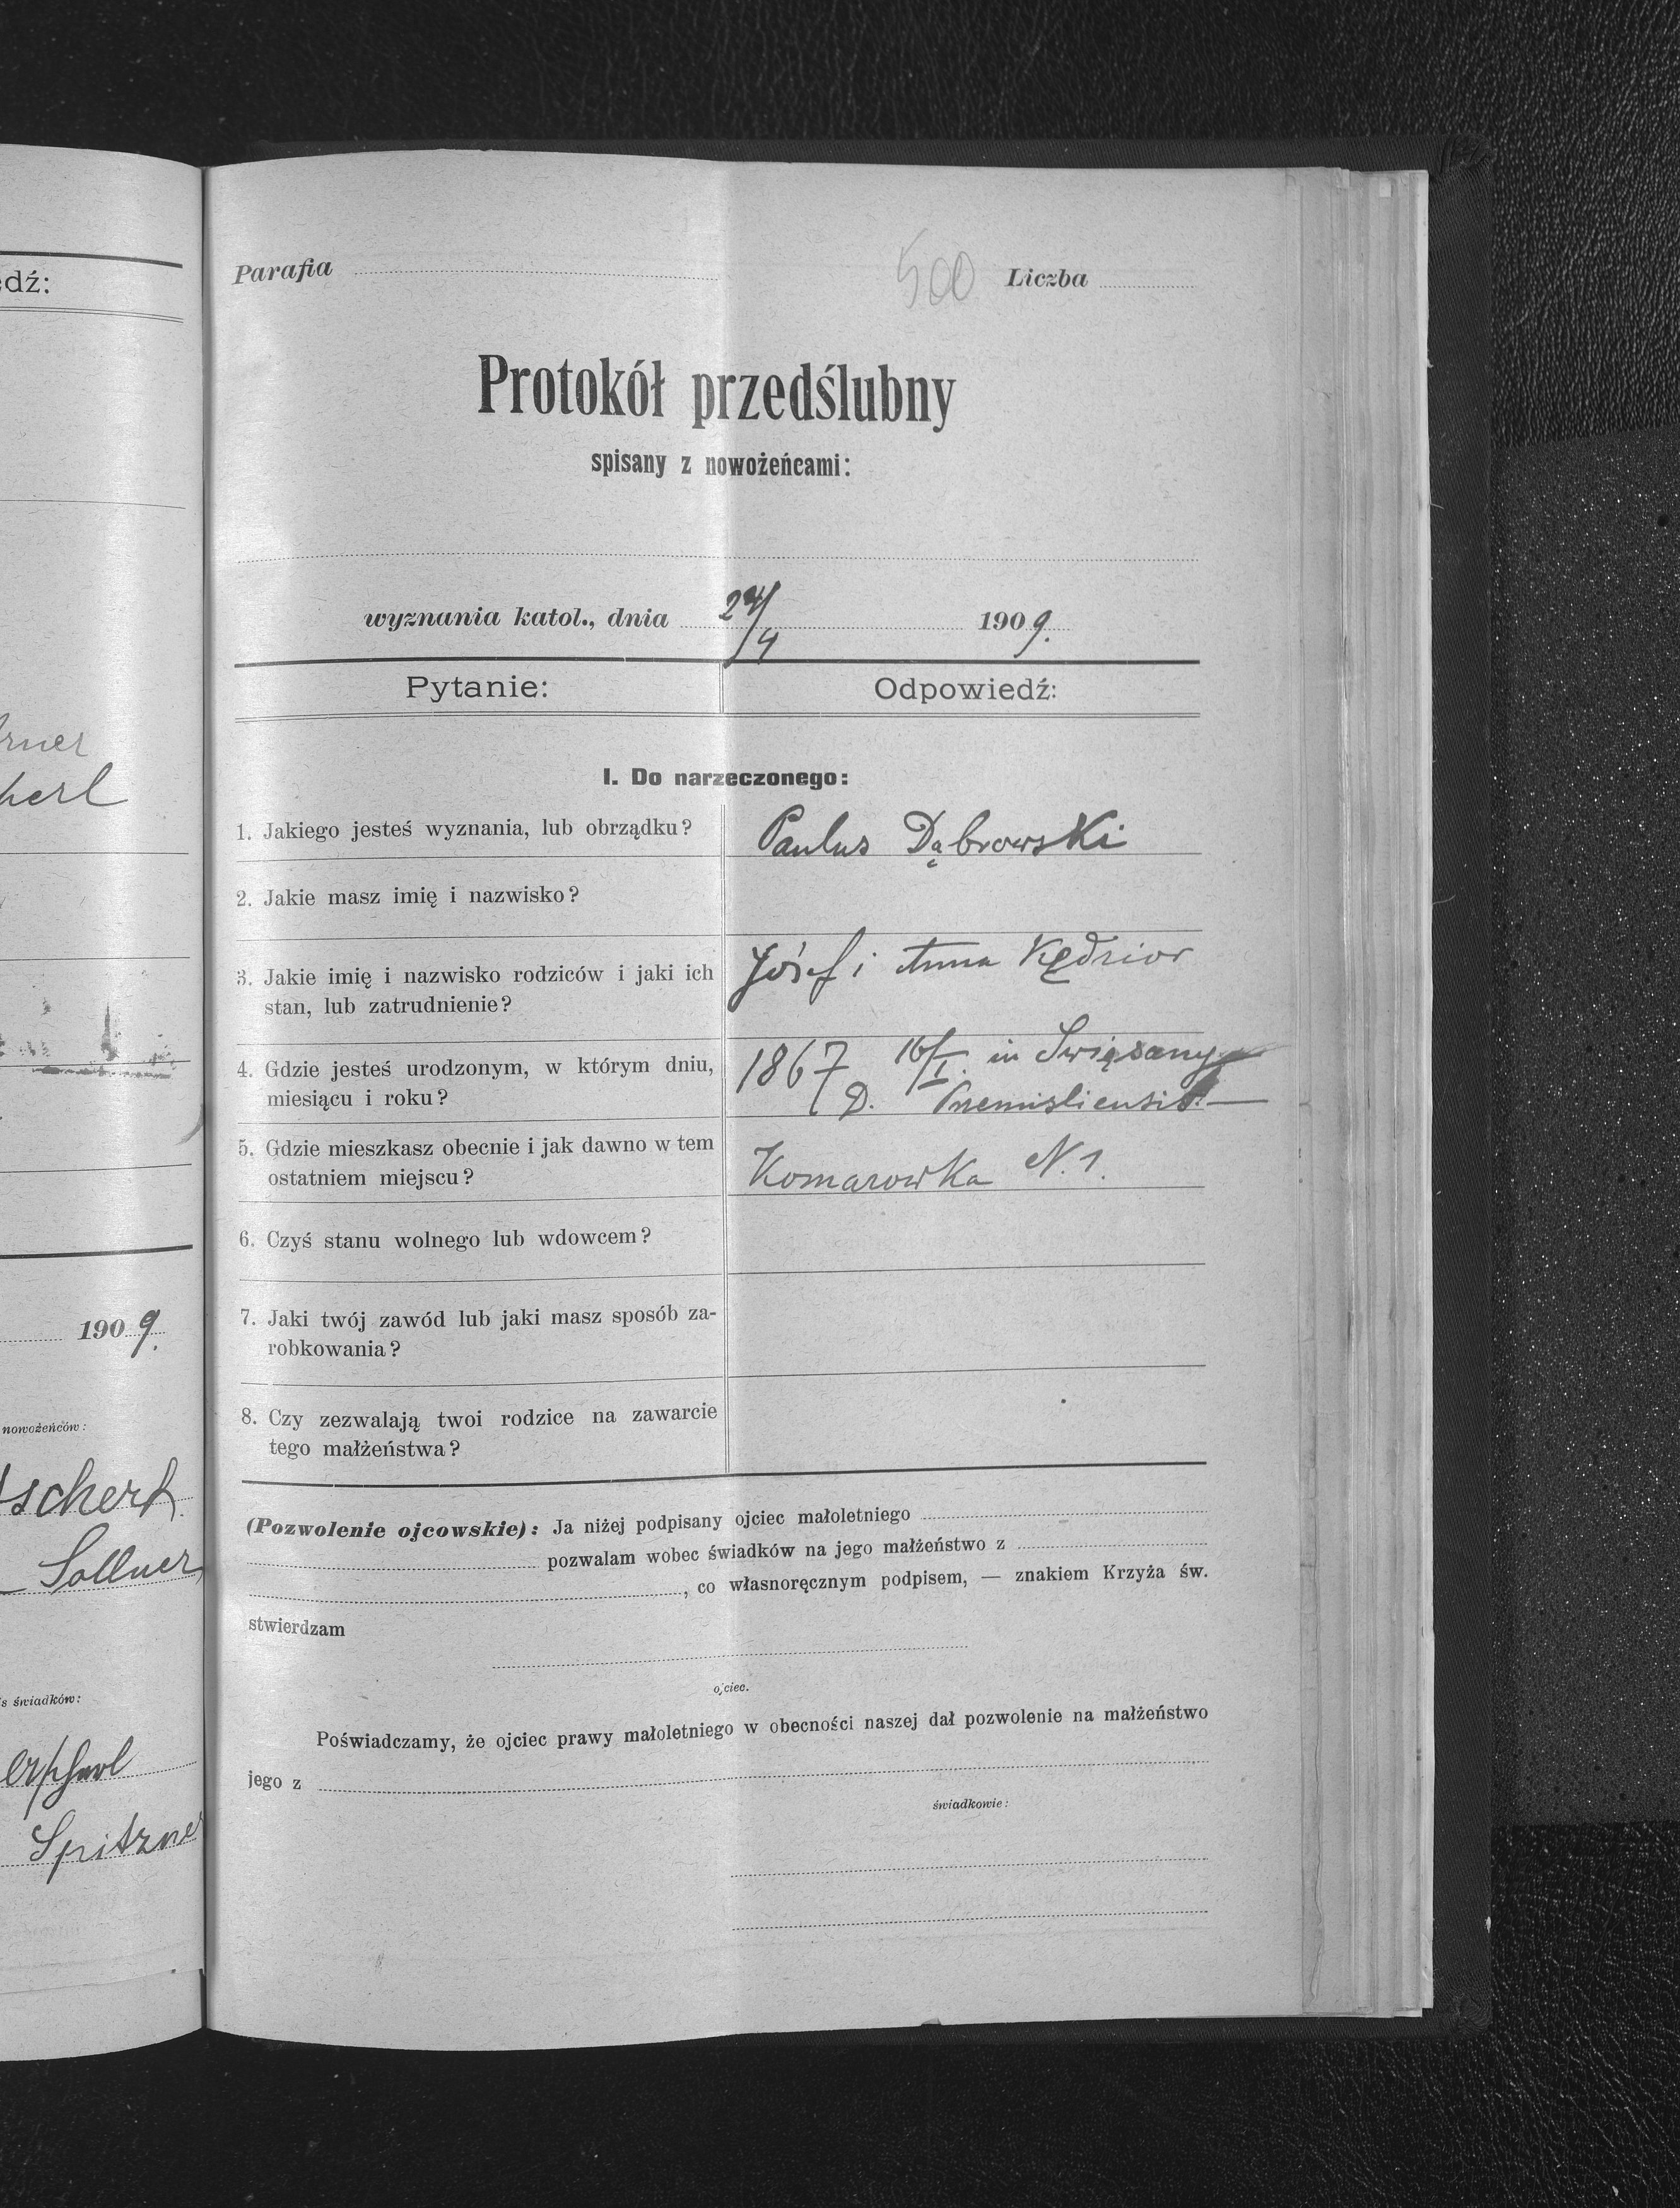 edź:
rner
herl
1909.
nowożeńców:
scherl
Sollner
s świadków:
Spitzner
Parafia
500 Liczba
Protokół przedślubny
spisany z nowożeńcami:
wyznania katol., dnia 24/4 1909.
Pytanie: Odpowiedź:
I. Do narzeczonego:
1. Jakiego jesteś wyznania, lub obrządku? Paulus Dąbrowski
2. Jakie masz imię i nazwisko?
3. Jakie imię i nazwisko rodziców i jaki ich Józef i Anna Kędzior
stan, lub zatrudnienie?
4. Gdzie jesteś urodzonym, w którym dniu, 1867 16/I. in Swięzany
miesiącu i roku? D. Premisliensis.
5. Gdzie mieszkasz obecnie i jak dawno w tem
ostatniem miejscu? Komarowka N. 1.
6. Czyś stanu wolnego lub wdowcem?
7. Jaki twój zawód lub jaki masz sposób za-
robkowania?
8. Czy zezwalają twoi rodzice na zawarcie
tego małżeństwa?
(Pozwolenie ojcowskie): Ja niżej podpisany ojciec małoletniego
pozwalam wobec świadków na jego małżeństwo z
, co własnoręcznym podpisem, — znakiem Krzyża św.
stwierdzam
ojciec.
Poświadczamy, że ojciec prawy małoletniego w obecności naszej dał pozwolenie na małżeństwo
jego z
świadkowie: